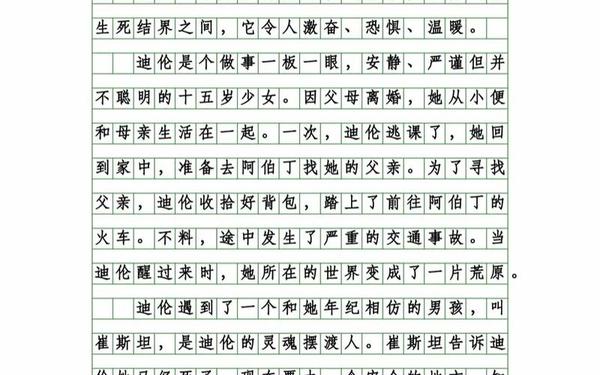 生死结界之间，它令人激奋、恐惧、温暖。
迪伦是个做事一板一眼，安静、严谨但并
不聪明的十五岁少女。因父母离婚，她从小便
和母亲生活在一起。一次，迪伦逃课了，她回
到家中，准备去阿伯丁找她的父亲。为了寻找
父亲，迪伦收拾好背包，踏上了前往阿伯丁的
火车。不料，途中发生了严重的交通事故。当
迪伦醒过来时，她所在的世界变成了一片荒原。
迪伦遇到了一个和她年纪相仿的男孩，叫
崔斯坦，是迪伦的灵魂摆渡人。崔斯坦告诉迪